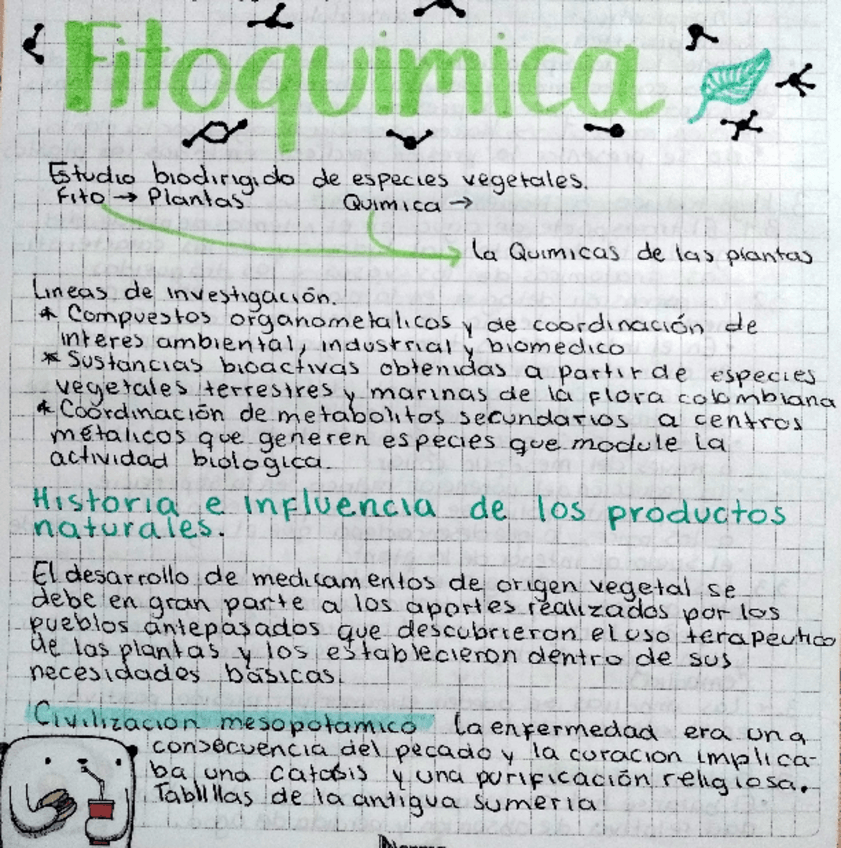 Fitoquimica
Estudio biodirigido de especies vegetales.
Fito → Plantas Quimica →
la Quimicas de las plantas
Lineas de investigación.
* Compuestos organometalicos y de coordinación de
interes ambiental, industrial y biomedico
* Sustancias bioactivas obtenidas a partir de especies
vegetales terrestres y marinas de la flora colombiana
* Coordinación de metabolitos secundarios a centros
métalicos que generen especies que module la
actividad biologica.
Historia e influencia de los productos
naturales.
El desarrollo de medicamentos de origen vegetal se
debe en gran parte a los aportes realizados por los
pueblos antepasados que descubrieron el uso terapeutico
de las plantas y los establecieron dentro de sus
necesidades básicas.
Civilizacion mesopotamico la enfermedad era una
consecuencia del pecado y la curacion implica-
ba una catasis y una purificación religiosa.
Tablillas de la antigua sumeria